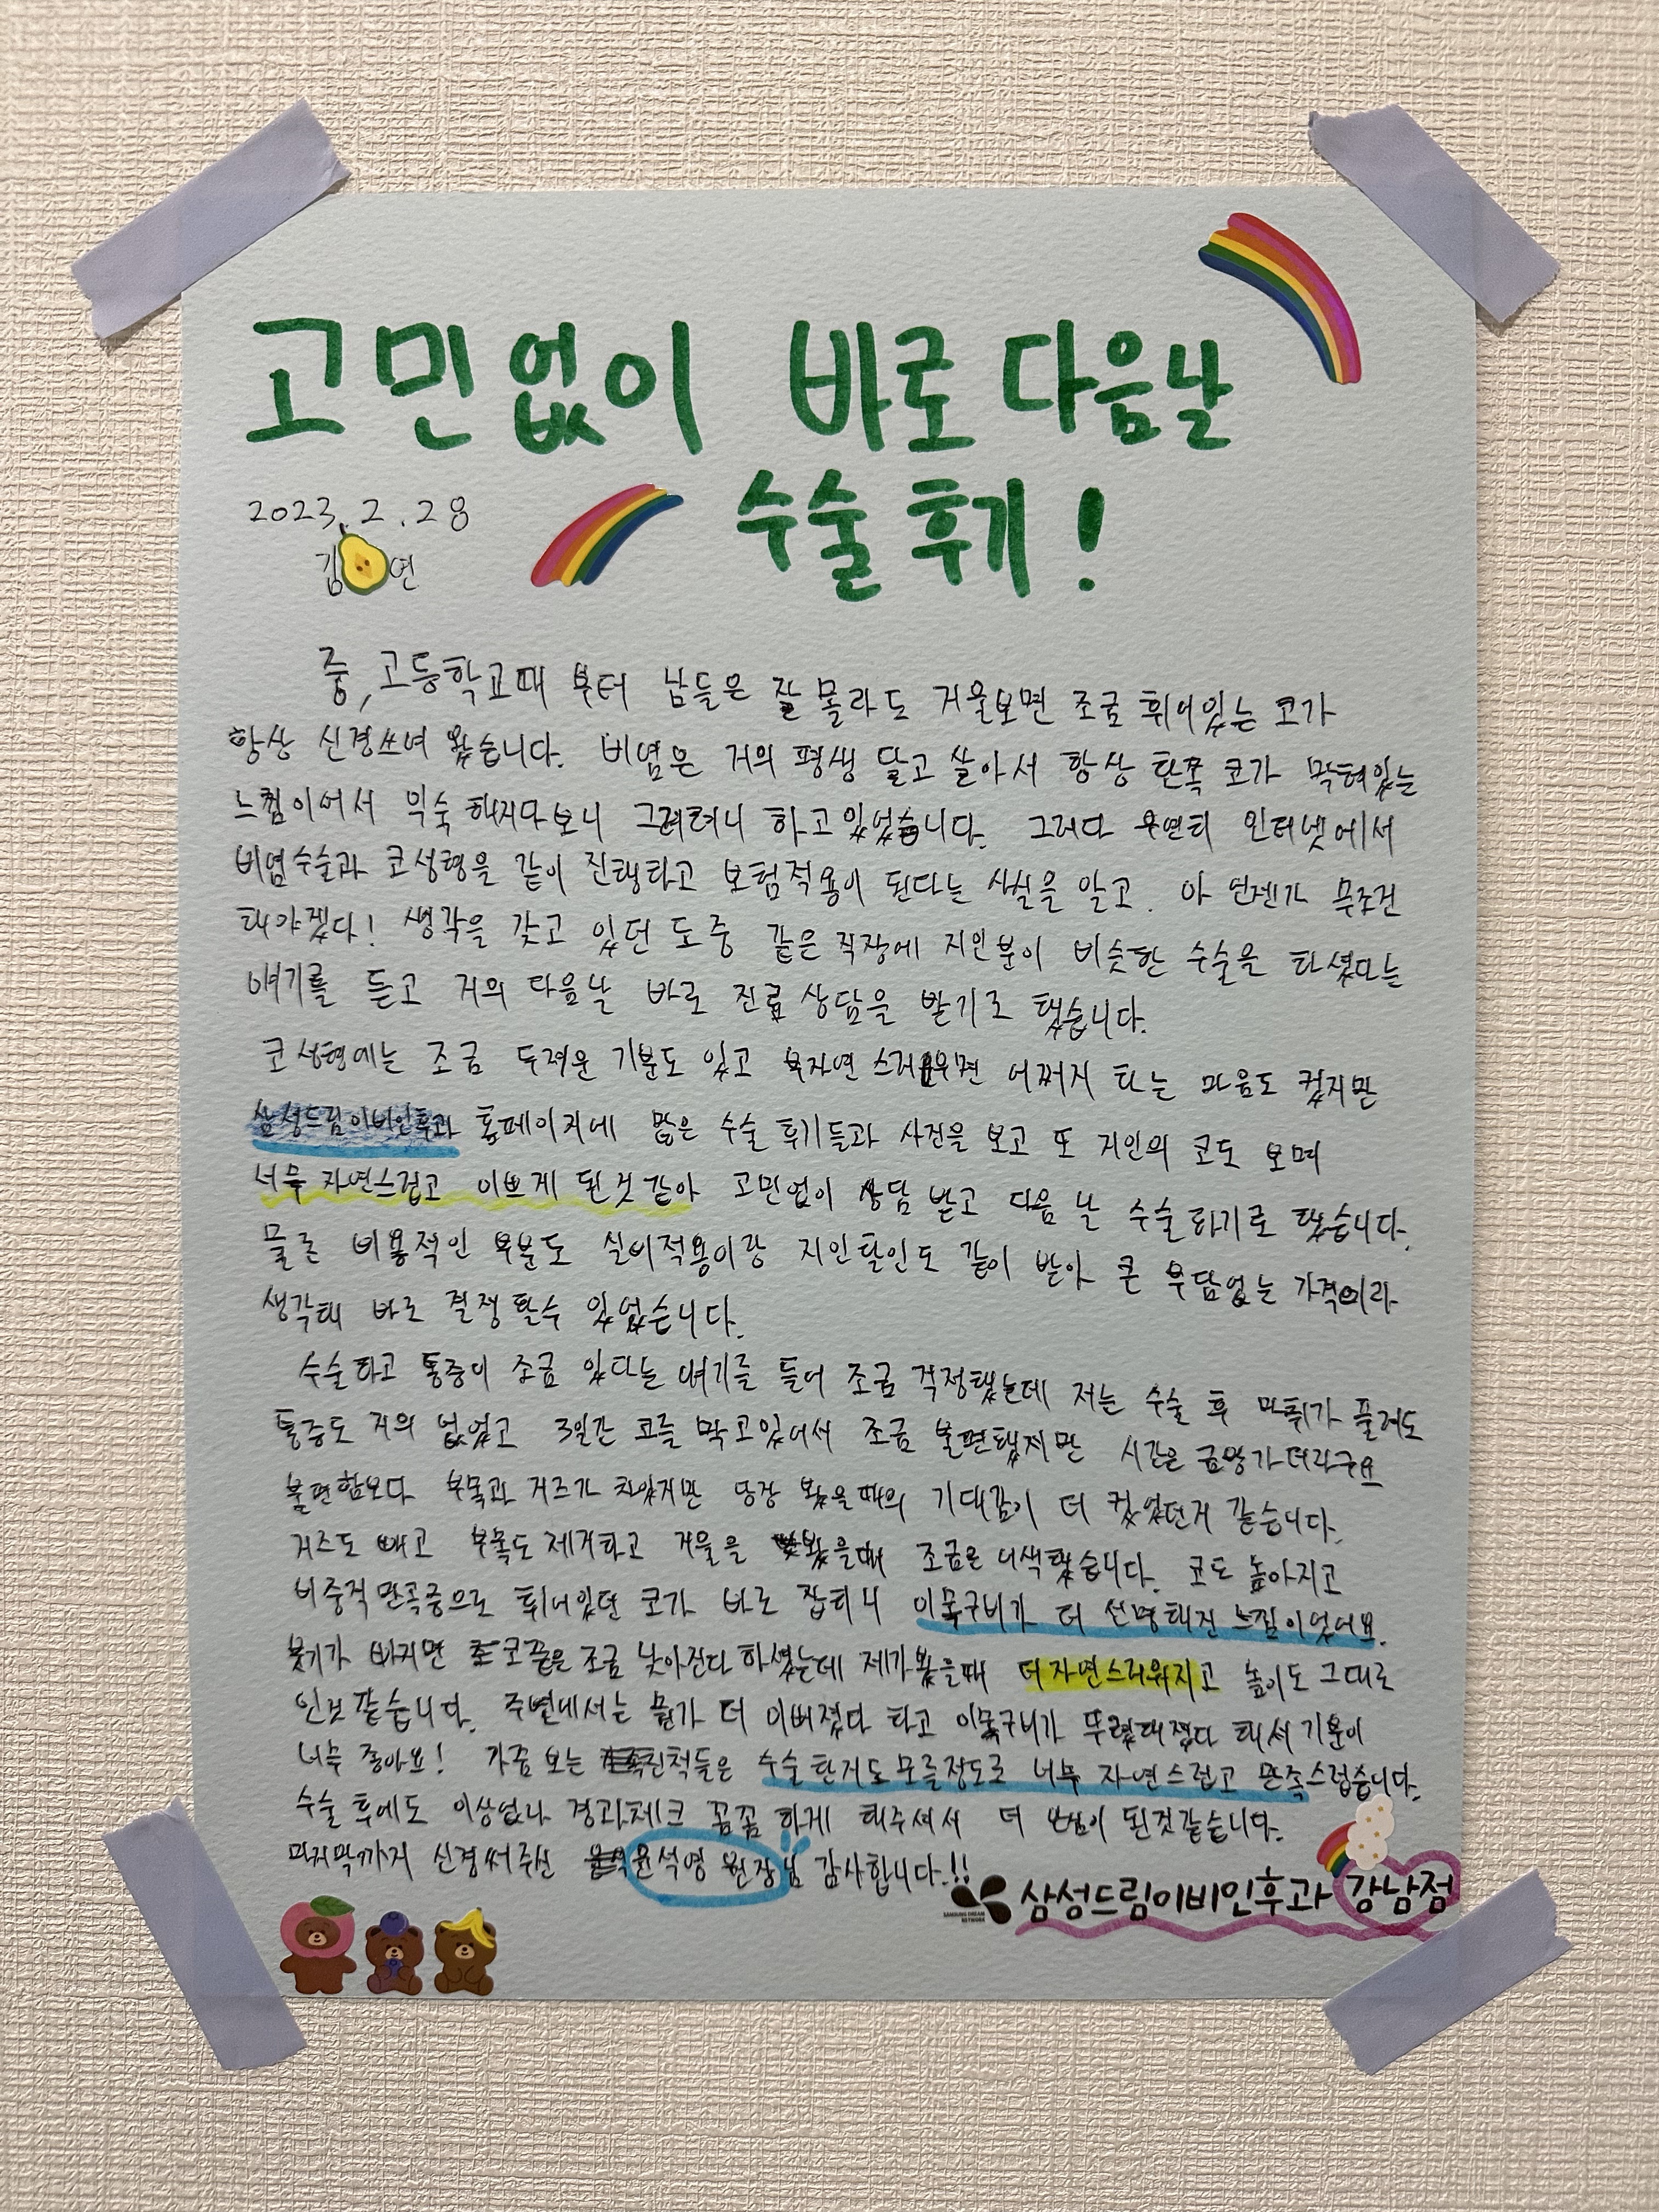 고민없이 바로 다음날
수술 후기!
2023.2.28
김 연
중,고등학교때 부터 남들은 잘 몰라도 거울보면 조금 휘어있는 코가
항상 신경쓰여 왔습니다. 비염은 거의 평생 달고 살아서 항상 한쪽 코가 막혀있는
느낌이어서 익숙 해지다보니 그려려니 하고있었습니다. 그러다 우연히 인터넷에서
비염수술과 코성형을 같이 진행하고 보험적용이 된다는 사실을 알고. 아 언젠가 무조건
해야겠다! 생각을 갖고 있던 도중 같은 직장에 지인분이 비슷한 수술을 하셨다는
얘기를 듣고 거의 다음날 바로 진료 상담을 받기로 했습니다.
코성형에는 조금 두려운 기분도 있고 부자연 스러우면 어쩌지 하는 마음도 컸지만
삼성드림이비인후과 홈페이지에 많은 수술 후기들과 사진을 보고 또 지인의 코도 보며
너무 자연스럽고 이쁘게 된것 같아 고민없이 상담 받고 다음 날 수술하기로 했습니다.
물론 비용적인 부분도 실비적용이랑 지인할인도 같이 받아 큰 부담없는 가격이라
생각해 바로 결정 할수 있었습니다.
수술하고 통증이 조금 있다는 얘기를 들어 조금 걱정했는데 저는 수술 후 마취가 풀려도
통증도 거의 없었고 3일간 코를 막고있어서 조금 불편했지만 시간은 금방가더라구요
불편함보다 부목과 거즈가 차있지만 당장 봤을때의 기대감이 더 컸었던거 같습니다.
거즈도 빼고 부목도 제거하고 거울을 봤을때 조금은 어색했습니다. 코도 높아지고
비중격만곡증으로 휘어있던 코가 바로 잡히니 이목구비가 더 선명해진 느낌이었어요.
붓기가 빠지면 코끝은 조금 낮아진다 하셨는데 제가봤을때 더 자연스러워지고 높이도 그대로
인것같습니다. 주변에서는 뭔가 더 이뻐졌다 하고 이목구비가 뚜렷해졌다 해서 기분이
너무 좋아요! 가끔 보는 친척들은 수술 한거도 모를정도로 너무 자연스럽고 만족스럽습니다.
수술 후에도 이상없나 경과체크 꼼꼼 하게 해주셔서 더 안심이 된것같습니다.
마지막까지 신경써주신 윤석영 원장님 감사합니다.!!
SAMSUNG DREAM
NETWORK
삼성드림이비인후과 강남점